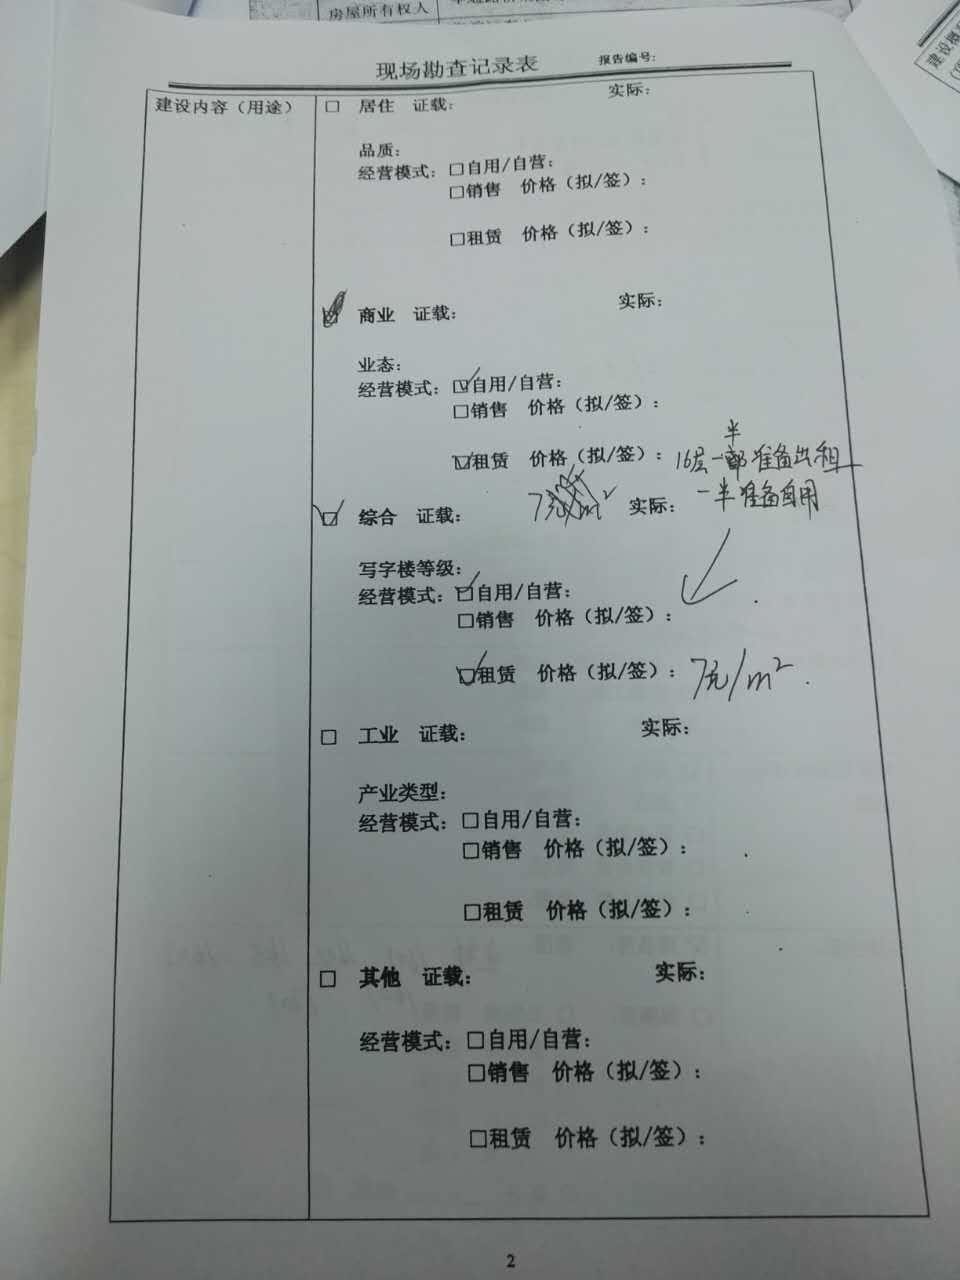 房屋所有权人
建设规
现场勘查记录表 报告编号:
建设内容（用途） □ 居住 证载: 实际:
品质:
经营模式: □自用/自营:
□销售 价格（拟/签）:
□租赁 价格（拟/签）:
☑ 商业 证载: 实际:
业态:
经营模式: ☑自用/自营:
□销售 价格（拟/签）:
半
☑租赁 价格（拟/签）: 16层一部准备出租
一半准备自用
☑ 综合 证载: 7元 m² 实际:
写字楼等级:
经营模式: ☑自用/自营:
□销售 价格（拟/签）:
☑租赁 价格（拟/签）: 7元/m²
□ 工业 证载: 实际:
产业类型:
经营模式: □自用/自营:
□销售 价格（拟/签）:
□租赁 价格（拟/签）:
□ 其他 证载: 实际:
经营模式: □自用/自营:
□销售 价格（拟/签）:
□租赁 价格（拟/签）:
2